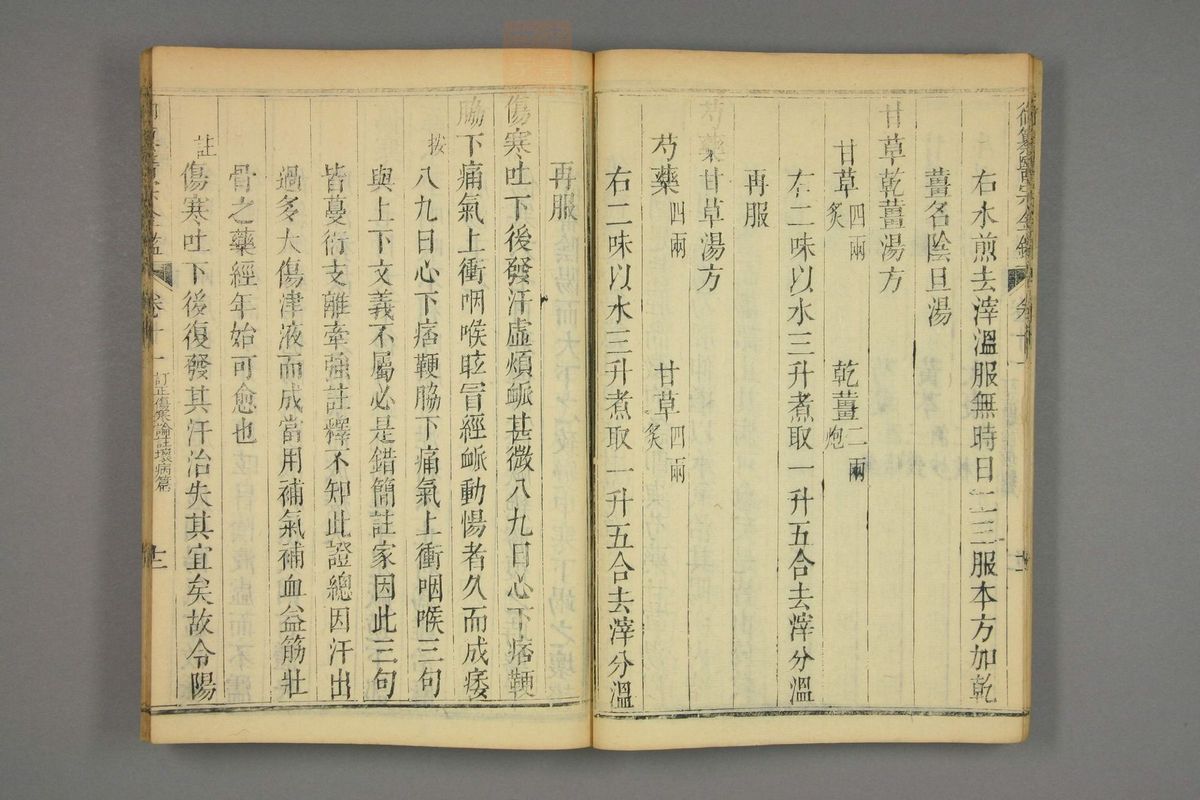 御纂醫宗金鑑 卷十一
右水煎去滓溫服無時日二三服本方加乾
薑名陰旦湯
甘草乾薑湯方
甘草四兩炙 乾薑二兩炮
右二味以水三升煮取一升五合去滓分溫
再服
芍藥甘草湯方
芍藥四兩 甘草四兩炙
右二味以水三升煮取一升五合去滓分溫
再服
傷寒吐下後發汗虛煩脈甚微八九日心下痞鞕
脇下痛氣上衝咽喉眩冒經脈動惕者久而成痿
按 八九日心下痞鞕脇下痛氣上衝咽喉三句
與上下文義不屬必是錯簡註家因此三句
皆蔓衍支離牽強註釋不知此證總因汗出
過多大傷津液而成當用補氣補血益筋壯
骨之藥經年始可愈也
註 傷寒吐下後復發其汗治失其宜矣故令陽
卷十一 訂正傷寒論註壞病篇 十三